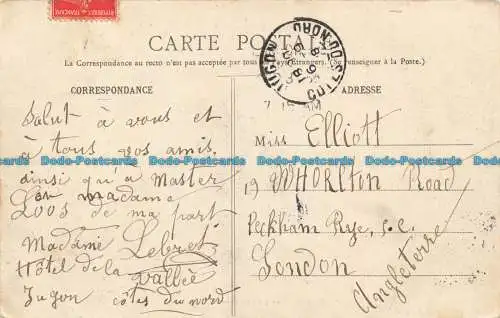 CARTE POSTALE
La Correspondance au recto n'est pas acceptée par tous
Étrangers. (Se renseigner à la Poste.)
CORRESPONDANCE
Salut à vous et
à tous vos amis,
ainsi qu'à Master
Loos de ma part
Madame Lebret
Hôtel de la Vallée
Jugon côtes du nord
ADRESSE
Miss Elliott
19 WHORLTON Road
Peckham Rye, S.E.
London
Angleterre
JUGON
Dodo-Postcards Dodo-Postcards Dodo-Postcards Dodo-Postcards